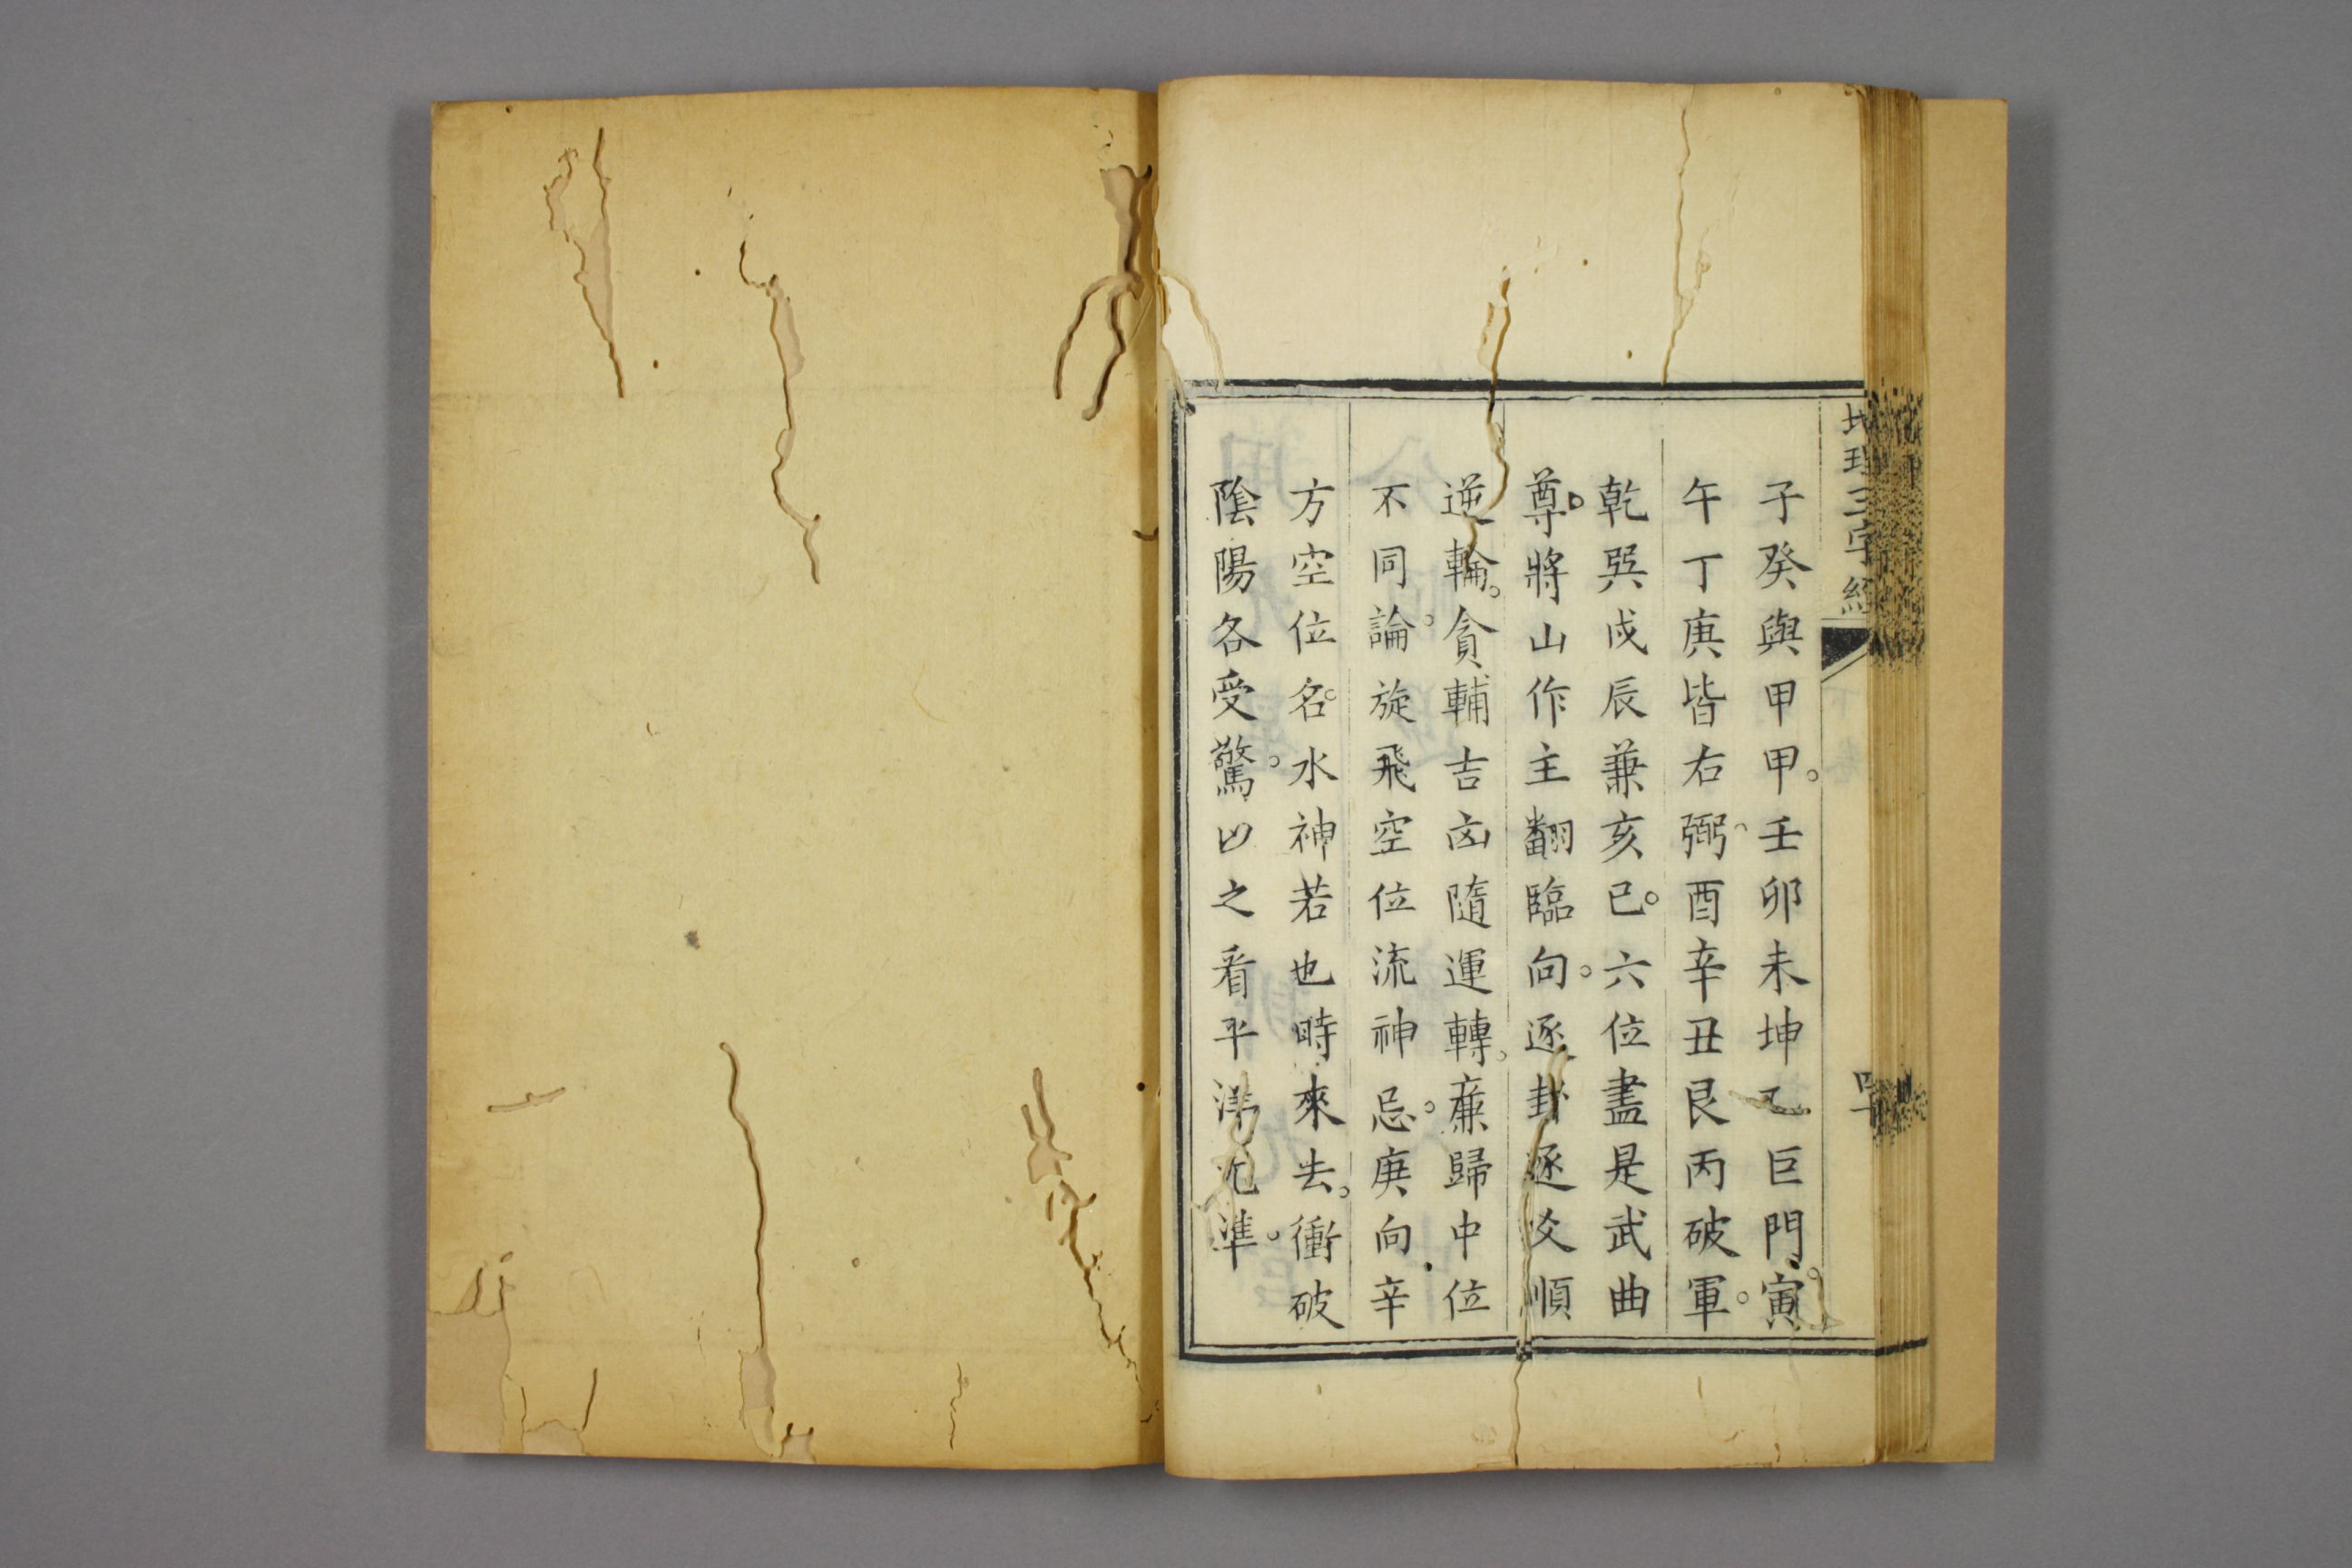 地理三字經
子癸與甲甲。壬卯未坤乙巨門。寅
午丁庚皆右弼。酉辛丑艮丙破軍。
乾巽戌辰兼亥巳。六位盡是武曲
尊。將山作主翻臨向。逐卦逐爻順
逆輪。貪輔吉凶隨運轉。廉歸中位
不同論。旋飛空位流神忌。庚向辛
方空位名。水神若也時來去。衝破
陰陽各受驚。以之看平洋尤準。